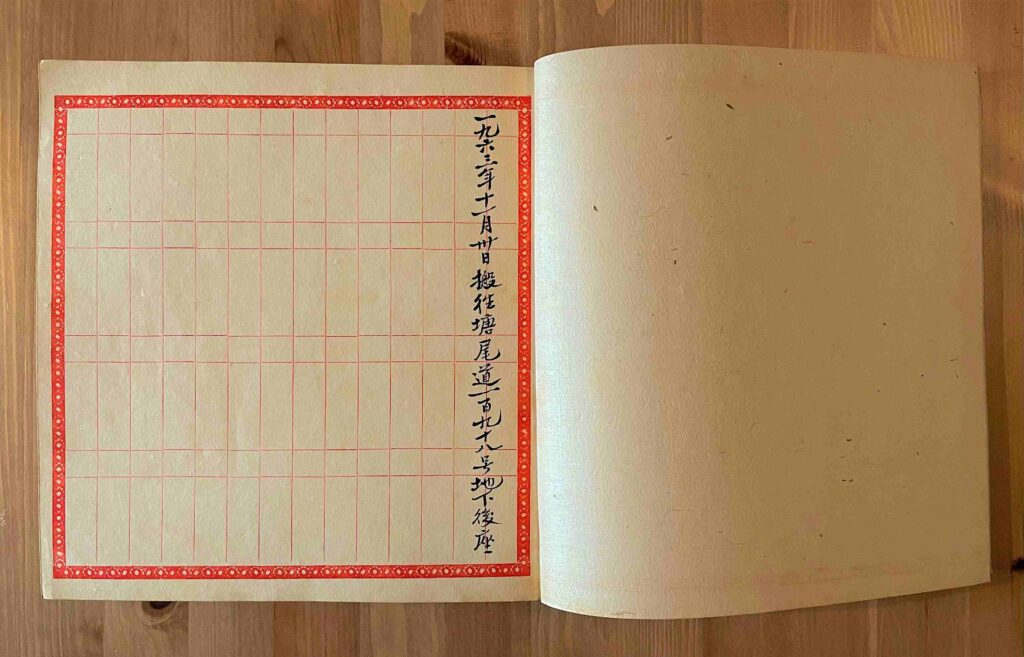 一九六三年十一月卅日搬往塘尾道一百九十八号地下後座